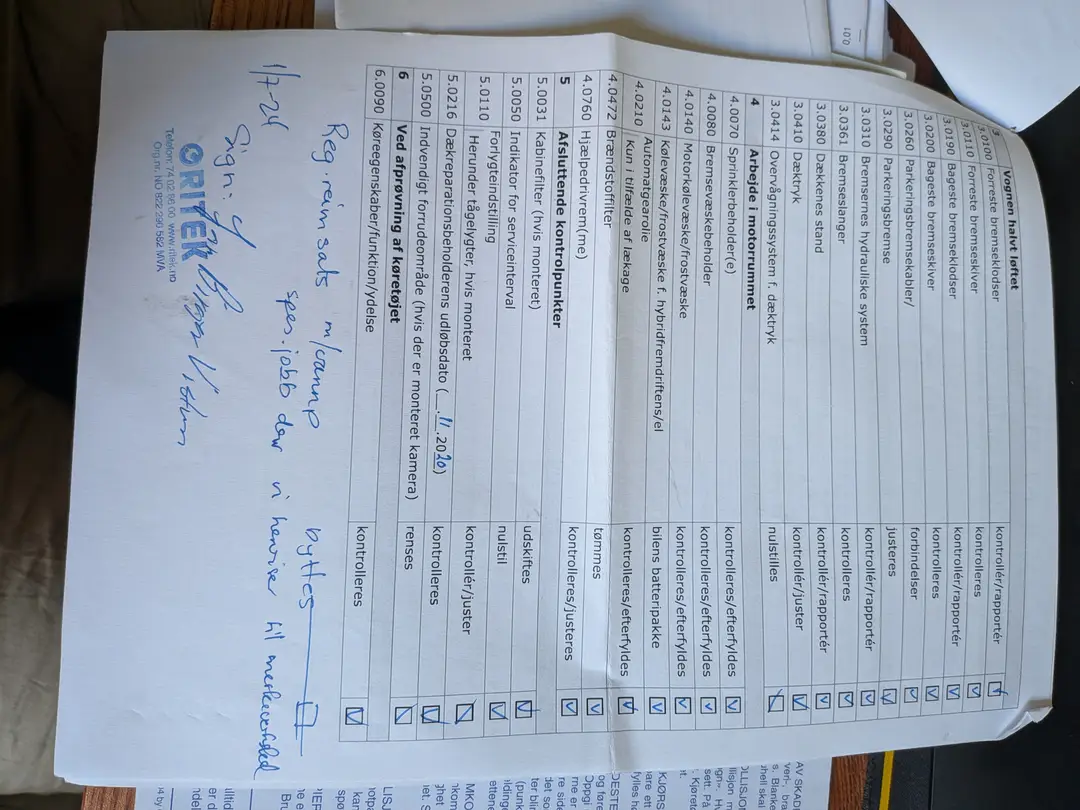 3 Vognen halvt løftet
3.0100 Forreste bremseklodser kontrollér/rapportér
3.0110 Forreste bremseskiver kontrolleres
3.0190 Bageste bremseklodser kontrollér/rapportér
3.0200 Bageste bremseskiver kontrolleres
3.0260 Parkeringsbremsekabler/ forbindelser
3.0290 Parkeringsbremse justeres
3.0310 Bremsernes hydrauliske system kontrollér/rapportér
3.0361 Bremseslanger kontrolleres
3.0380 Dækkenes stand kontrollér/rapportér
3.0410 Dæktryk kontrollér/juster
3.0414 Overvågningssystem f. dæktryk nulstilles
4 Arbejde i motorrummet
4.0070 Sprinklerbeholder(e) kontrolleres/efterfyldes
4.0080 Bremsevæskebeholder kontrolleres/efterfyldes
4.0140 Motorkølevæske/frostvæske kontrolleres/efterfyldes
4.0143 Kølevæske/frostvæske f. hybridfremdriftens/el bilens batteripakke
4.0210 Automatgearolie kontrolleres/efterfyldes
Kun i tilfælde af lækage
4.0472 Brændstoffilter tømmes
4.0760 Hjælpedrivrem(me) kontrolleres/justeres
5 Afsluttende kontrolpunkter
5.0031 Kabinefilter (hvis monteret) udskiftes
5.0050 Indikator for serviceinterval nulstil
5.0110 Forlygteindstilling kontrollér/juster
Herunder tågelygter, hvis monteret
5.0216 Dækreparationsbeholderens udløbsdato (__.11.2020) kontrolleres
5.0500 Indvendigt forrudeområde (hvis der er monteret kamera) renses
6 Ved afprøvning af køretøjet
6.0090 Køreegenskaber/funktion/ydelse kontrolleres
Reg.reim sats m/vannp byttes
spes.jobb der vi henviser til merkeverksted
1/7-24 Sign:
RITEK
Telefon: 74 02 86 00 www.ritek.no
Org.nr. NO 822 296 582 MVA